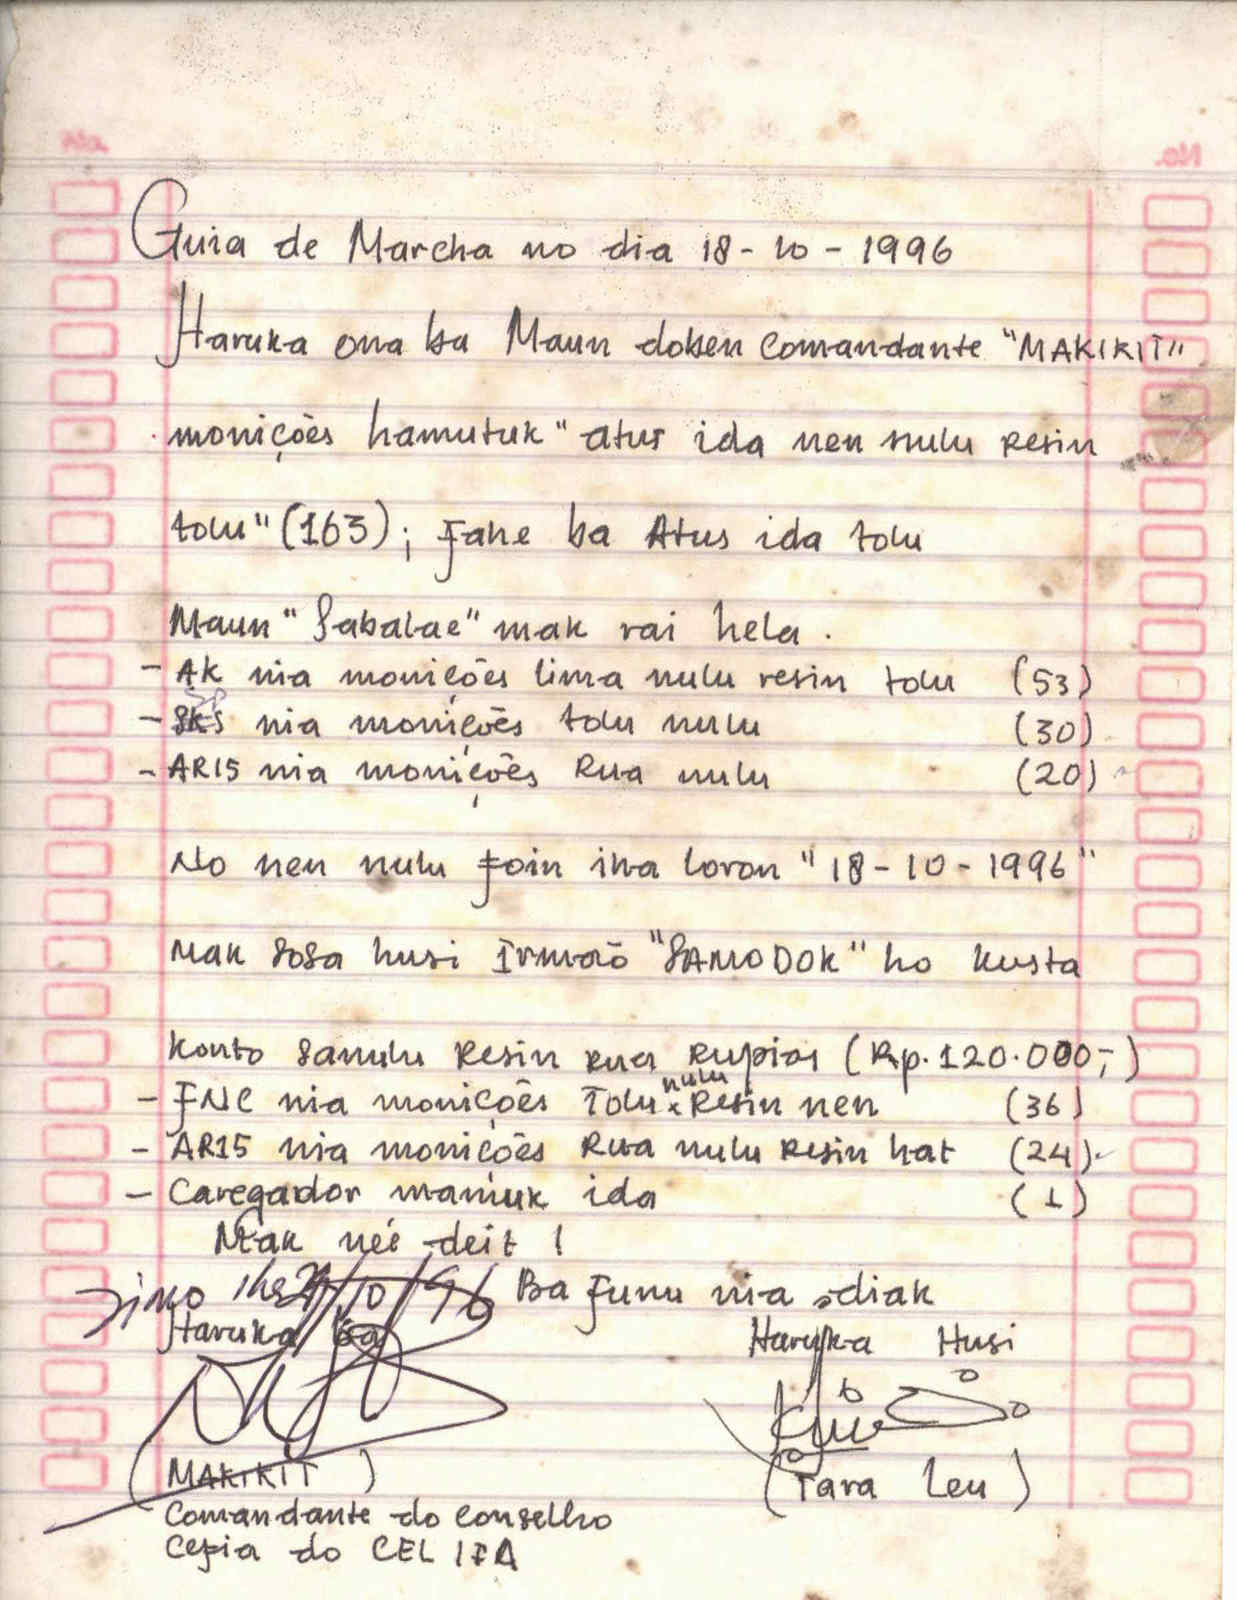 No.
Guia de Marcha no dia 18-10-1996
Haruka ona ba Maun doben Comandante "MAKIKIT"
monições hamutuk "atus ida nen nulu resin
tolu" (163); Fahe ba Atus ida tolu
Maun "Sabalae" mak rai hela.
- AK nia monições lima nulu resin tolu (53)
- SKS nia monições tolu nulu (30)
- AR15 nia monições Rua nulu (20)
No nen nulu foin iha loron "18-10-1996"
Mak Sosa husi Irmaõ "SAMODOK" ho kusta
Konto Sanulu Resin rua Rupias (Rp. 120.000,-)
- FNC nia monições Tolu nulu Resin nen (36)
- AR15 nia monições Rua nulu Resin hat (24)
- Caregador mamuk ida (1)
Mak neé deit !
Simo iha 21/10/96 Ba Funu nia diak
Haruka ba Haruka Husi
(MAKIKIT) (Tara Leu)
Comandante do Conselho
Cepia do CEL IFA